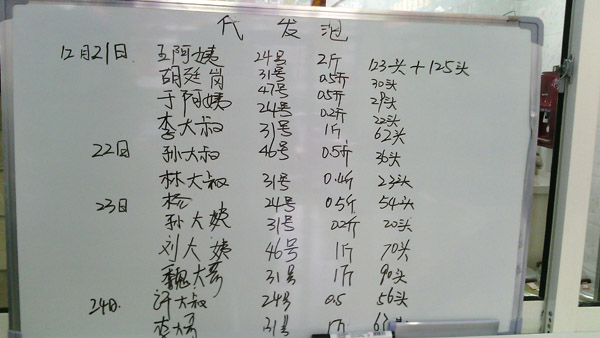 代发泡
12月21日 王阿姨 24号 2斤 123头+125头
胡廷岗 31号 0.5斤 30头
于阿姨 47号 0.5斤 29头
24号 0.2斤 22头
李大叔 31号 1斤 62头
22日 孙大叔 46号 0.5斤 36头
林大叔 31号 0.4斤 23头
23日 杨 24号 0.5斤 54头
孙大姨 31号 0.2斤 20头
刘大姨 46号 1斤 70头
魏大哥 31号 1斤 90头
24日 许大叔 24号 0.5 56头
李大哥 31号 1斤